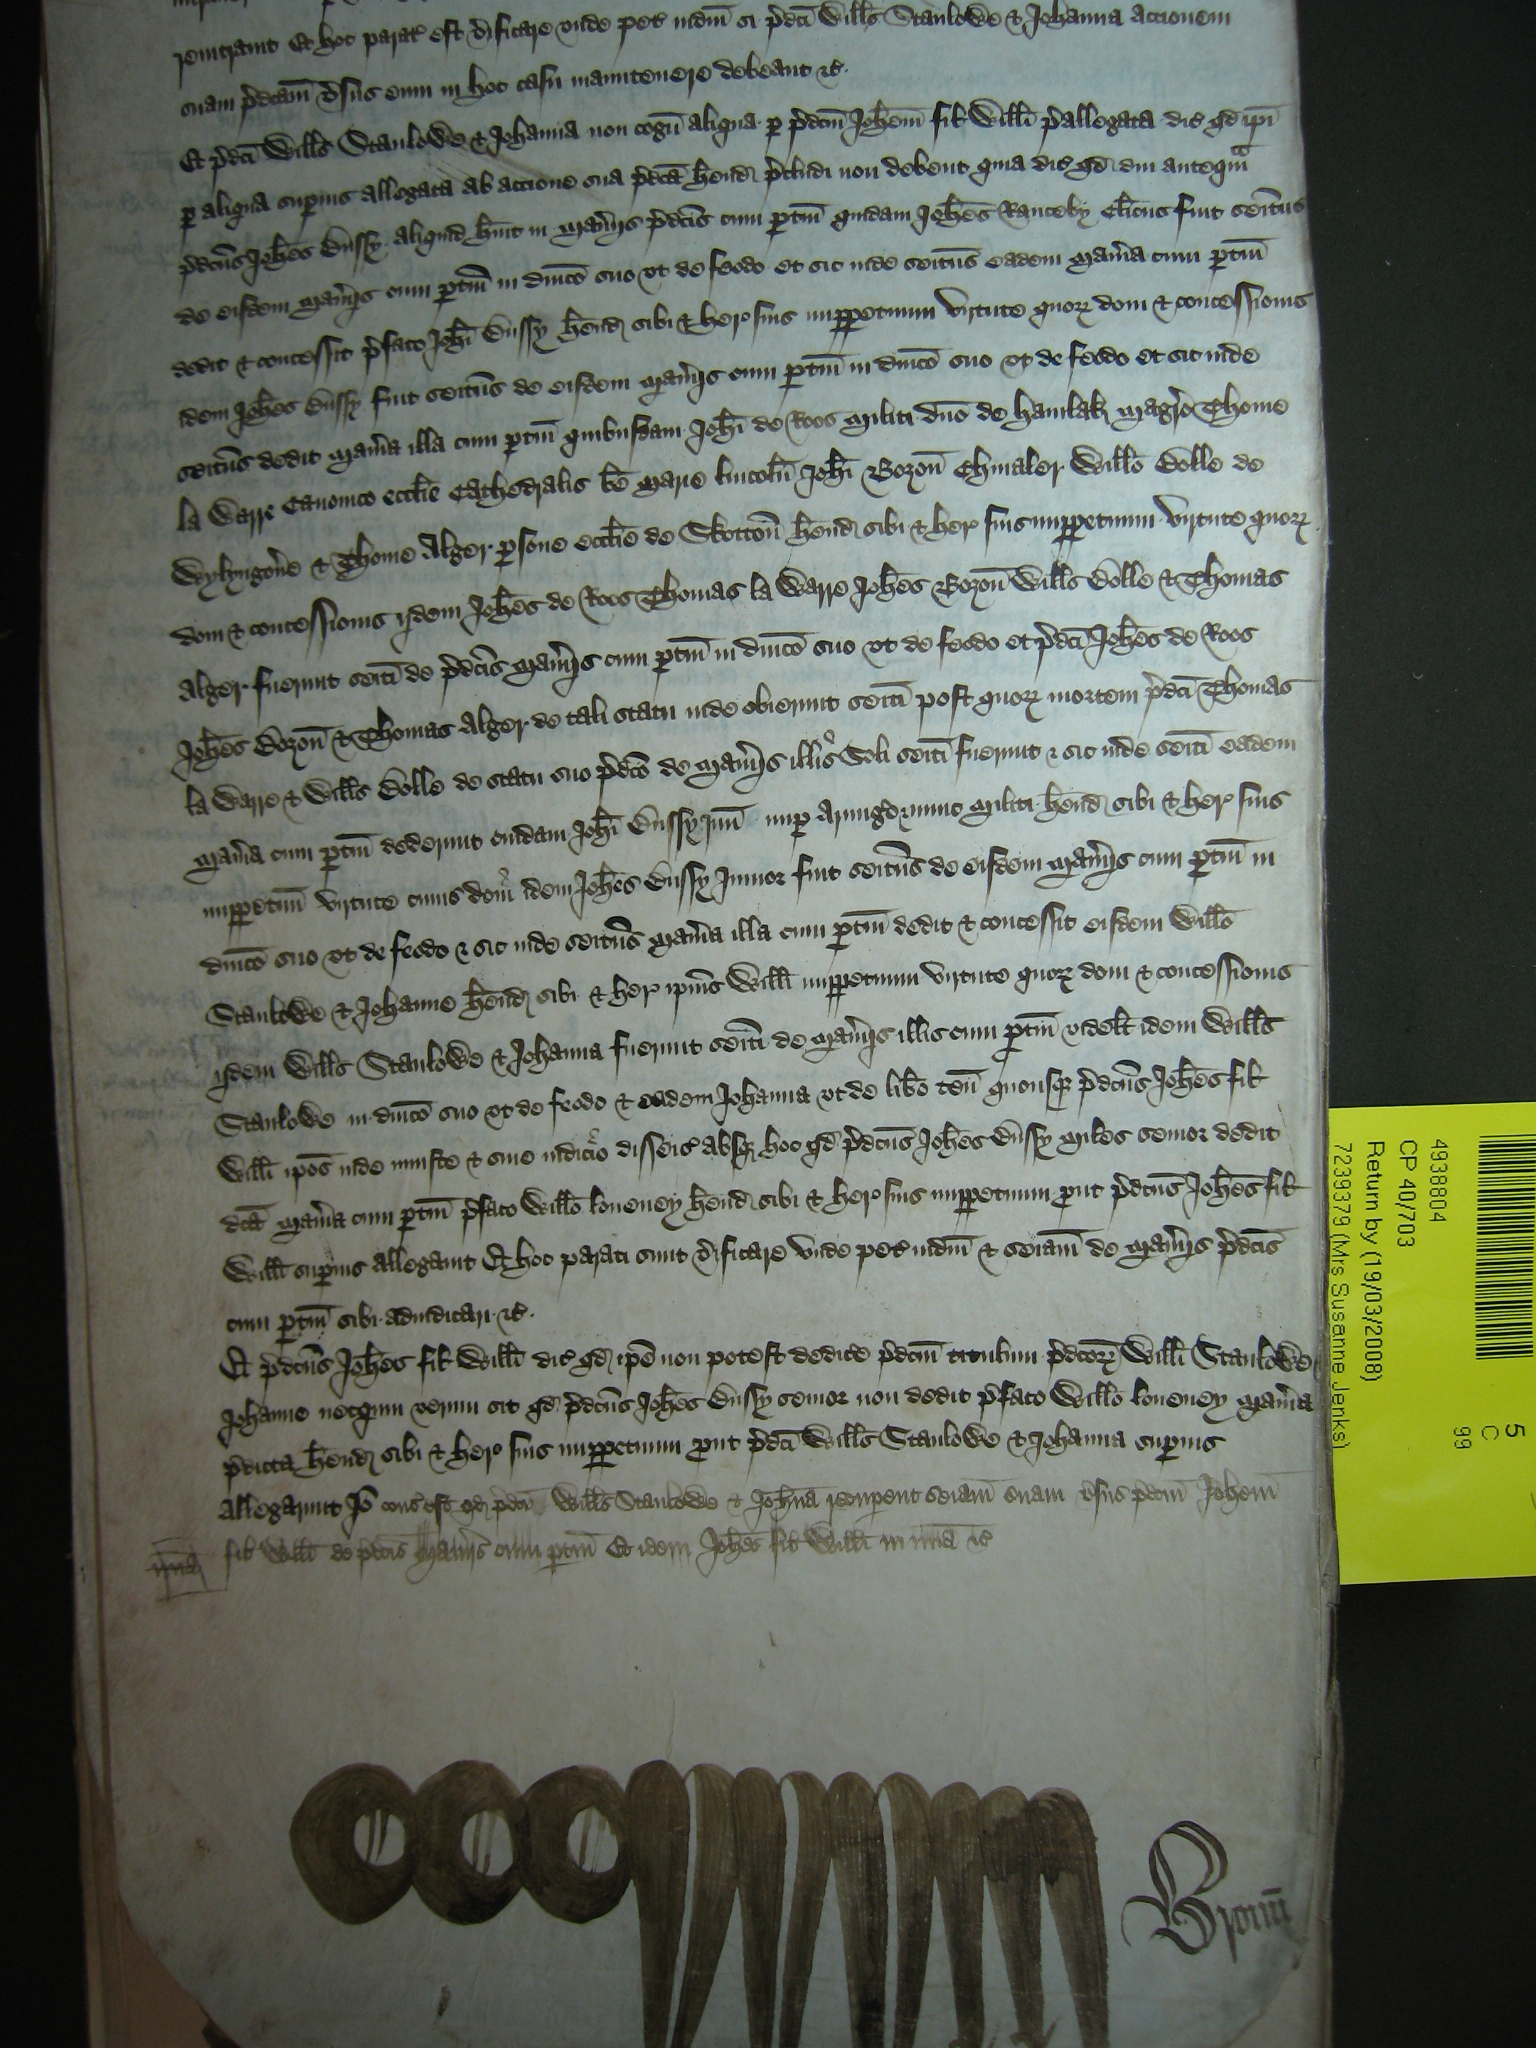 remitravit Et hoc parat est v̄ificare vnde pet̄ iudm̄ si p̄dc̄i Will̄s Staulowe & Johanna accionem
suam p̄dcam̄ v̄sus eum in hoc casu manutenere debeant &c̄.
Et p̄dc̄i Will̄s Staulowe & Johanna non cogn̄ aliqua p p̄dcm̄ Joh̄em fil̄ Willi p̄allegata dic̄ qd̄ ip̄i
p aliqua sup̄ius allegata ab accione sua p̄dc̄a h̄end p̄cludi non debent quia dic̄ qd̄ diu anteqm̄
p̄dcūs Joh̄es Bussy aliquid h̄uit in Man̄iis p̄dc̄is cum p̄tin̄ quidam Joh̄es Ranceby cl̄icus fuit sēitus
de eisdem Man̄iis cum p̄tin̄ in dn̄ico suo vt de feodo et sic inde seitūs eadem Man̄ia cum p̄tin̄
dedit & concessit p̄fato Joh̄i Bussy h̄end sibi & her̄ suis imppetuum virtute quor̄ doni & concessionis
idem Joh̄es Bussy fuit seitūs de eisdem Man̄iis cum p̄tin̄ in dn̄ico suo vt de feodo et sic inde
seitūs dedit Man̄ia illa cum p̄tin̄ quibusdam Joh̄i de Roos Militi dn̄o de hamlak Magr̄o Thome
la Warre Canonico eccl̄ie Cathedralis b̄e Marie lincoln̄ Joh̄i Bozon̄ Chiualer Will̄o Bolle de
Wylyngore & Thome Alger p̄sone eccl̄ie de Skotton̄ h̄end sibi & her̄ suis imppetuum virtute quor̄
doni & concessionis ijdem Joh̄es de Roos Thomas la Warre Joh̄es Bozon̄ Will̄s Bolle & Thomas
Alger fuerunt seit̄i de p̄dc̄is Man̄iis cum p̄tin̄ in dn̄ico suo vt de feodo et p̄dc̄i Joh̄es de Roos
Joh̄es Bozon̄ & Thomas Alger de tali statu inde obierunt seit̄i post quor̄ mortem p̄dc̄i Thomas
la Warre & Will̄s Bolle de statu suo p̄dc̄o de Man̄iis illis Soli seit̄i fuerunt & sic inde seit̄i eadem
Man̄ia cum p̄tin̄ dederunt cuidam Joh̄i Bussy Jun̄ nup Armiḡo nunc Militi h̄end sibi & her̄ suis
imppetuū virtute cuius doni idem Joh̄es Bussy Junior fuit seitūs de eisdem Man̄iis cum p̄tin̄ in
dn̄ico suo vt de feodo & sic inde seitūs Man̄ia illa cum p̄tin̄ dedit & concessit eisdem Will̄o
Staulowe & Johanne h̄end sibi & her̄ ip̄ius Will̄i imppetuum virtute quor̄ doni & concessionis
ijdem Will̄s Staulowe & Johanna fuerunt seit̄i de Man̄iis illis cum p̄tin̄ videl̄t idem Will̄s
Staulowe in dn̄ico suo vt de feodo & eadem Johanna vt de lib̄o ten̄ quousq̄ p̄dcūs Joh̄es fil̄
Will̄i ip̄os inde iniuste & sine iudic̄io disseis̄ absq̄ hoc qd̄ p̄dcūs Joh̄es Bussy Miles senior dedit
dc̄a Man̄ia cum p̄tin̄ p̄fato Will̄o loueney h̄end sibi & her̄ suis imppetuum put p̄dcūs Joh̄es fil̄
Will̄i sup̄ius allegauit Et hoc parati sunt v̄ificare vnde pet̄ iudm̄ & seiam̄ de Man̄iis p̄dc̄is
cum p̄tin̄ sibi adiudicari &c̄.
Et p̄dcūs Joh̄es fil̄ Will̄i dic̄ qd̄ ip̄e non potest dedic̄e p̄dcm̄ titulum p̄dcor̄ Will̄i Staulowe
Johanne necquin verum sit qd̄ p̄dcūs Joh̄es Bussy senior non dedit p̄fato Will̄o loueney Man̄ia
p̄dicta h̄end sibi & her̄ suis imppetuum put p̄dc̄i Will̄s Staulowe & Johanna superius
allegarunt Jō cons̄ est qd̄ p̄dc̄i Will̄s Staulowe & Joh̄na recuperent seiam̄ suam v̄sus p̄dcm̄ Joh̄em
m̄ia fil̄ Will̄i de p̄dc̄is Man̄iis cum p̄tin̄ Et idem Joh̄es fil̄ Will̄i in mīa &c̄
4938804
CP 40/703
Return by (19/03/2008)
7239379 (Mrs Susanne Jenks)
5
C
99